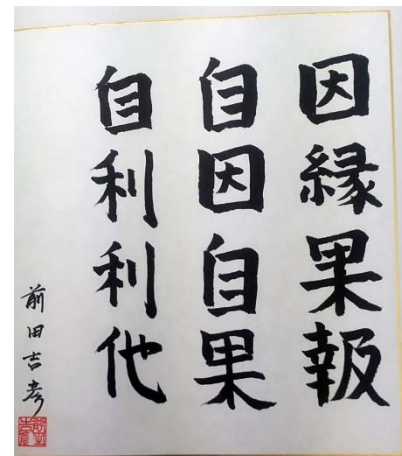 因縁果報
自因自果
自利利他
前田吉彦